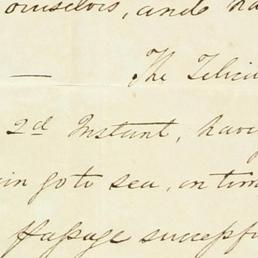 ourselves, and ha
— The Felici
2d Instant, have
in go to sea, on
Passage successf